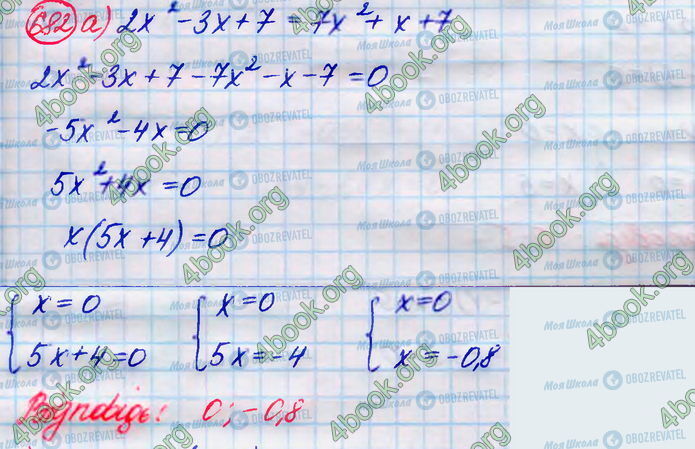 682 а) 2x² - 3x + 7 = 7x² + x + 7
2x² - 3x + 7 - 7x² - x - 7 = 0
-5x² - 4x = 0
5x² + 4x = 0
x(5x + 4) = 0
{ x = 0 { x = 0 { x = 0
5x + 4 = 0 5x = -4 x = -0,8
Відповідь: 0; -0,8
4book.org
Моя Школа OBOZREVATEL